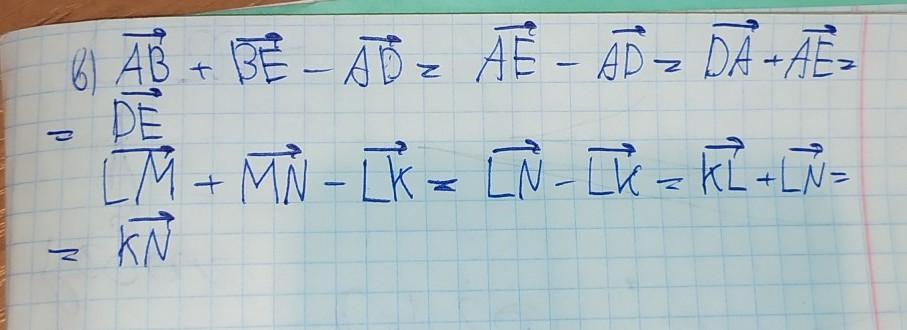 в) $\overrightarrow{AB} + \overrightarrow{BE} - \overrightarrow{AD} = \overrightarrow{AE} - \overrightarrow{AD} = \overrightarrow{DA} + \overrightarrow{AE} =$
$= \overrightarrow{DE}$
$\overrightarrow{LM} + \overrightarrow{MN} - \overrightarrow{LK} = \overrightarrow{LN} - \overrightarrow{LK} = \overrightarrow{KL} + \overrightarrow{LN} =$
$= \overrightarrow{KN}$